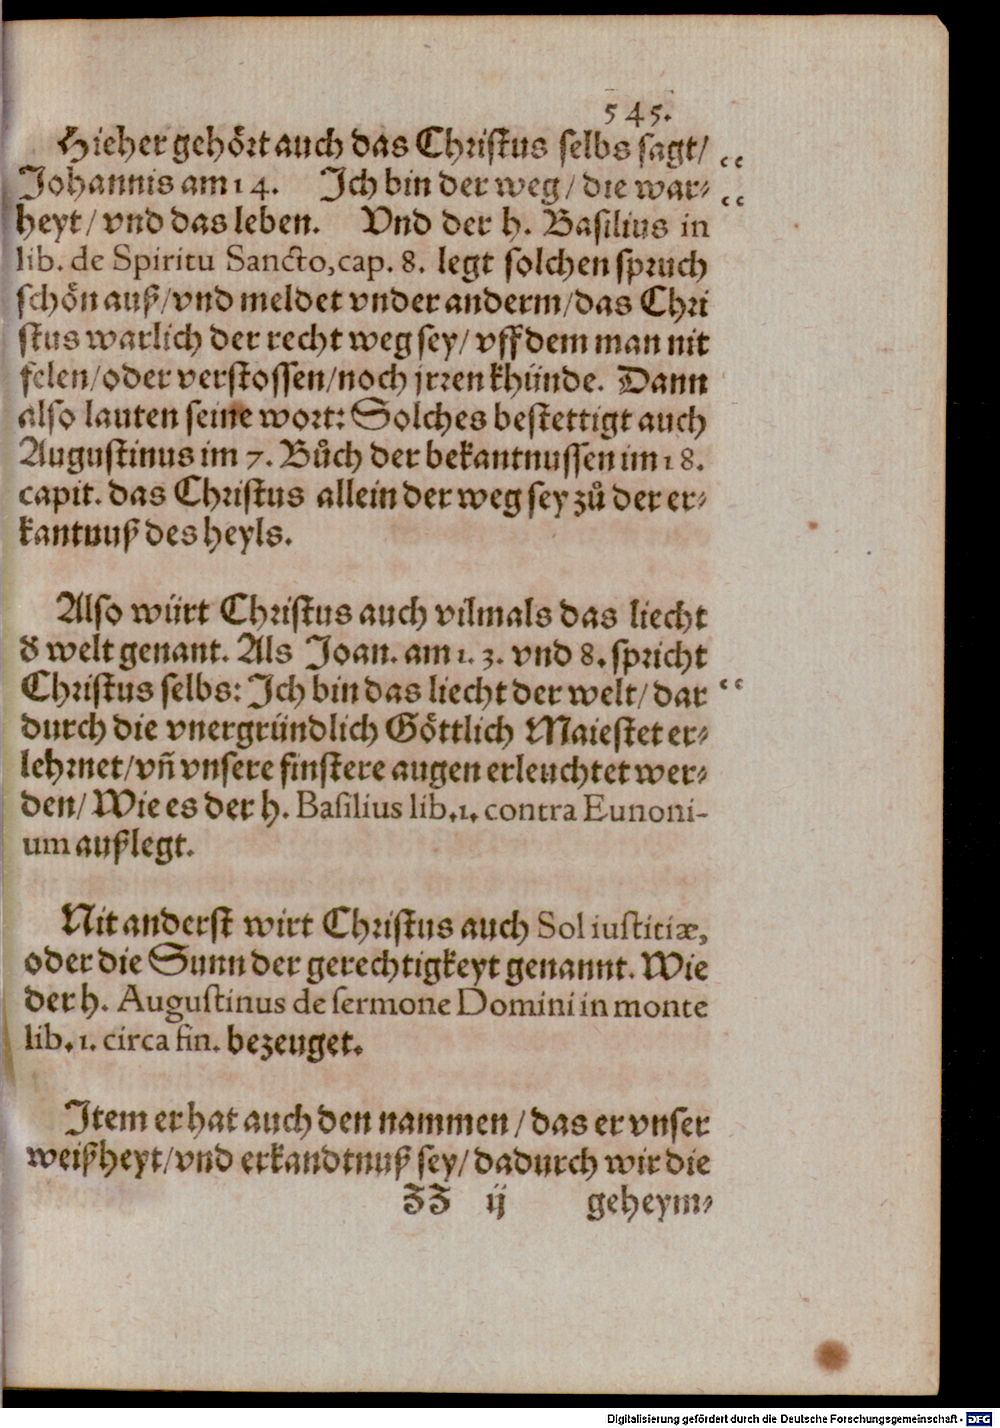 545.
Hieher gehört auch das Christus selbs sagt/ “
Johannis am 14. Ich bin der weg/ die war⸗ “
heyt/ vnd das leben. Vnd der h. Basilius in
lib. de Spiritu Sancto, cap. 8. legt solchen spruch
schön auß/ vnd meldet vnder anderm/ das Chri
stus warlich der recht weg sey/ vff dem man nit
felen/ oder verstossen/ noch jrren khünde. Dann
also lauten seine wort: Solches bestettigt auch
Augustinus im 7. Bůch der bekantnussen im 18.
capit. das Christus allein der weg sey zů der er⸗
kantnuß des heyls.
Also würt Christus auch vilmals das liecht
d̕ welt genant. Als Joan. am 1. 3. vnd 8. spricht
Christus selbs: Ich bin das liecht der welt/ dar “
durch die vnergründlich Göttlich Maiestet er⸗
lehrnet/ vñ vnsere finstere augen erleuchtet wer⸗
den/ Wie es der h. Basilius lib. 1. contra Eunoni-
um außlegt.
Nit anderst wirt Christus auch Sol iustitiæ,
oder die Sunn der gerechtigkeyt genannt. Wie
der h. Augustinus de sermone Domini in monte
lib. 1. circa fin. bezeuget.
Item er hat auch den nammen/ das er vnser
weißheyt/ vnd erkandtnuß sey/ dadurch wir die
ZZ ij geheym⸗
Digitalisierung gefördert durch die Deutsche Forschungsgemeinschaft - DFG